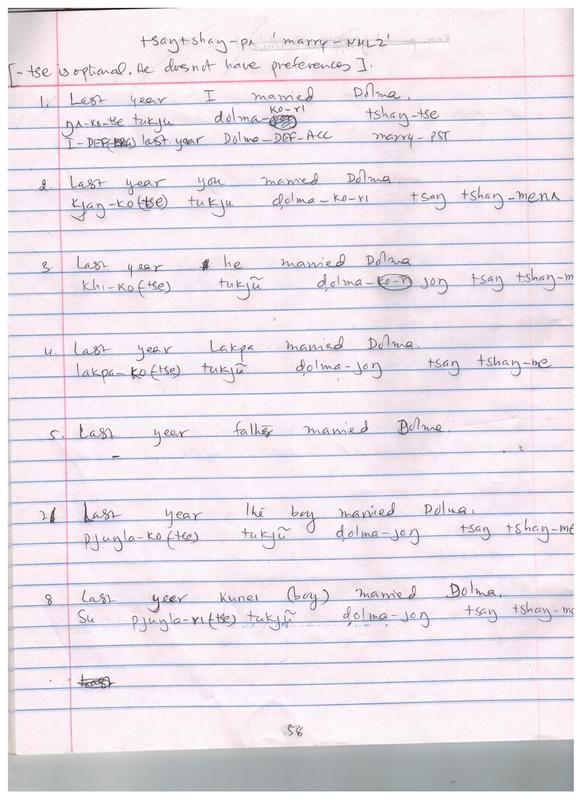 tsaŋ tshaŋ-pʌ 'marry-NML2'
[-tse is optional. He does not have preferences].
1. Last year I married Dolma.
ko-ri
ŋʌ-ko-tse tukju dolma- tshaŋ-tse
I-DEF(ERG) last year Dolma-DEF-ACC marry-PST
2. Last year you married Dolma.
kjaŋ-ko(tse) tukju ḍolma-ko-ri tsaŋ tshaŋ-menʌ
3. Last year he married Dolma
khi-ko(tse) tukjũ ḍolma-ko-ri joŋ tsaŋ tshaŋ-m
4. Last year Lakpa married Dolma.
lakpa-ko(tse) tukjũ ḍolma-joŋ tsaŋ tshaŋ-me
5. Last year father married Dolma.
Last year the boy married Dolma.
pjuŋla-ko(tse) tukjũ ḍolma-joŋ tsaŋ tshaŋ-me
8 Last year (boy) married Dolma.
Su pjuŋla-ri(tse) tukjũ ḍolma-joŋ tsaŋ tshaŋ-m
58